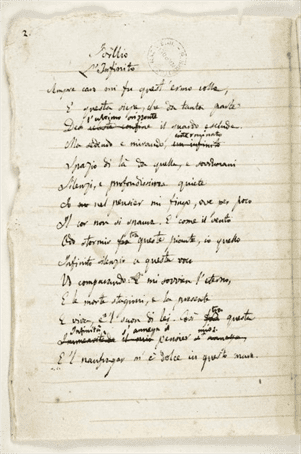 2.
Idillio
L'Infinito
Sempre caro mi fu quest'ermo colle,
E questa siepe, che da tanta parte
l'ultimo orizzonte
De celeste confine il guardo esclude.
interminato
Ma sedendo e mirando, un infinito
Spazio di là da quella, e sovrumani
Silenzi, e profondissima quiete
Io nel pensier mi fingo, ove per poco
Il cor non si spaura. E come il vento
Odo stormir tra queste piante, io quello
Infinito silenzio a questa voce
Vo comparando: E mi sovvien l'eterno,
E le morte stagioni, e la presente
E viva, e 'l suon di lei. Così tra questa
Infinità s'annega il mio
pensier
E 'l naufragar m'è dolce in questo mare.